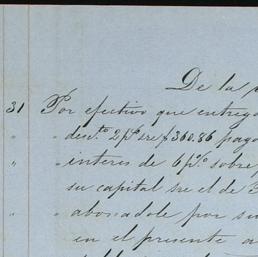 De la
31 Por efectivo que entreg
" " desc.to 2 p% sre $360.86 pag
" " interes de 6 p.% sobre
su capital sre el de 3
" " abonadole por su
en el presente a